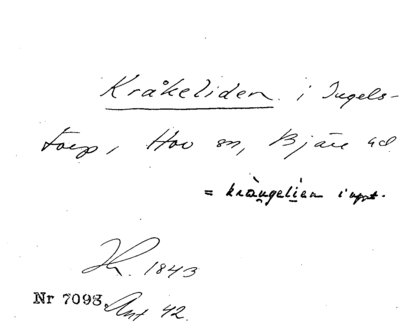 Kråkeliden i Ingels-
torp, Hov sn, Bjäre hd.
= krångelien i
1843
Nr 7098. Ant 42.